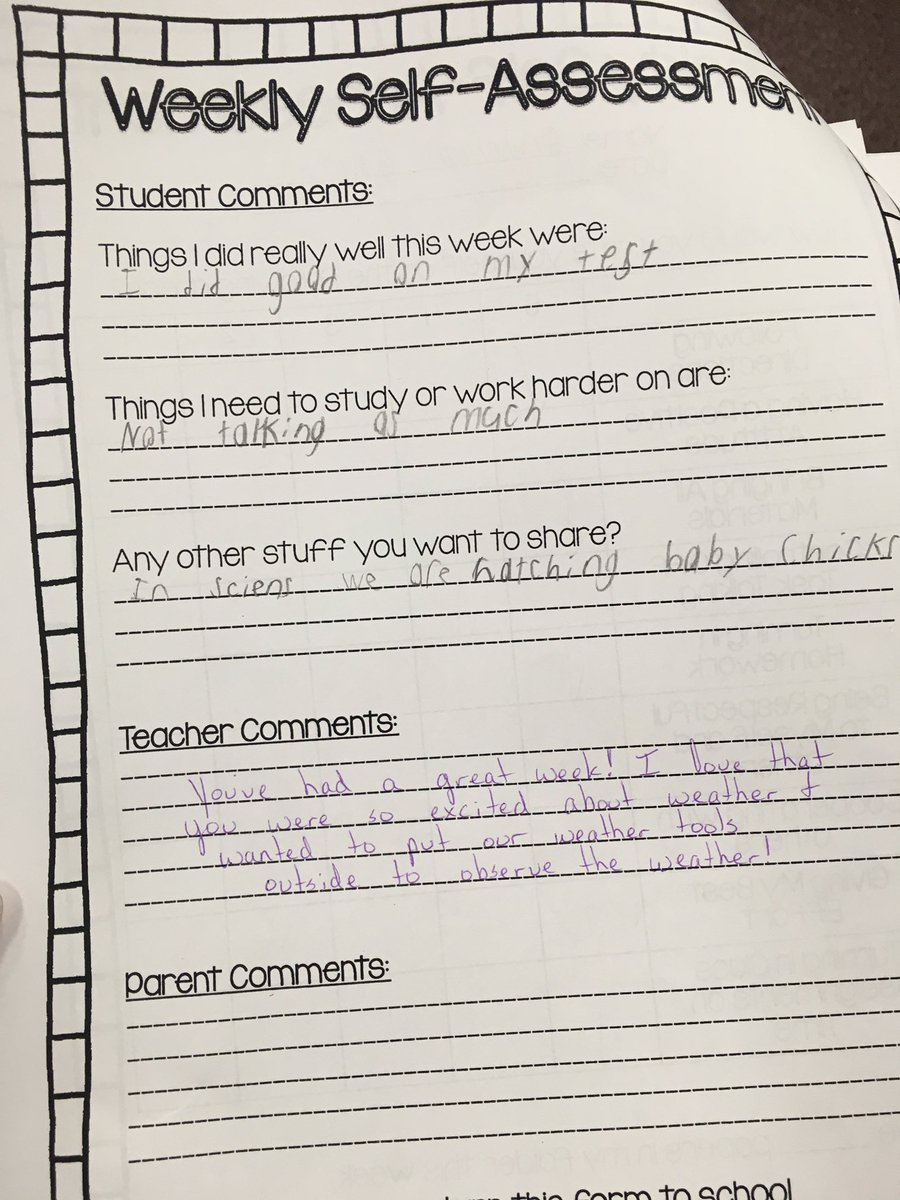 Weekly Self-Assessment
Student Comments:
Things I did really well this week were:
I did good on my test
Things I need to study or work harder on are:
Not talking as much
Any other stuff you want to share?
In sciens we are hatching baby chicks
Teacher Comments:
You've had a great week! I love that
you were so excited about weather &
wanted to put our weather tools
outside to observe the weather!
Parent Comments:
this form to school